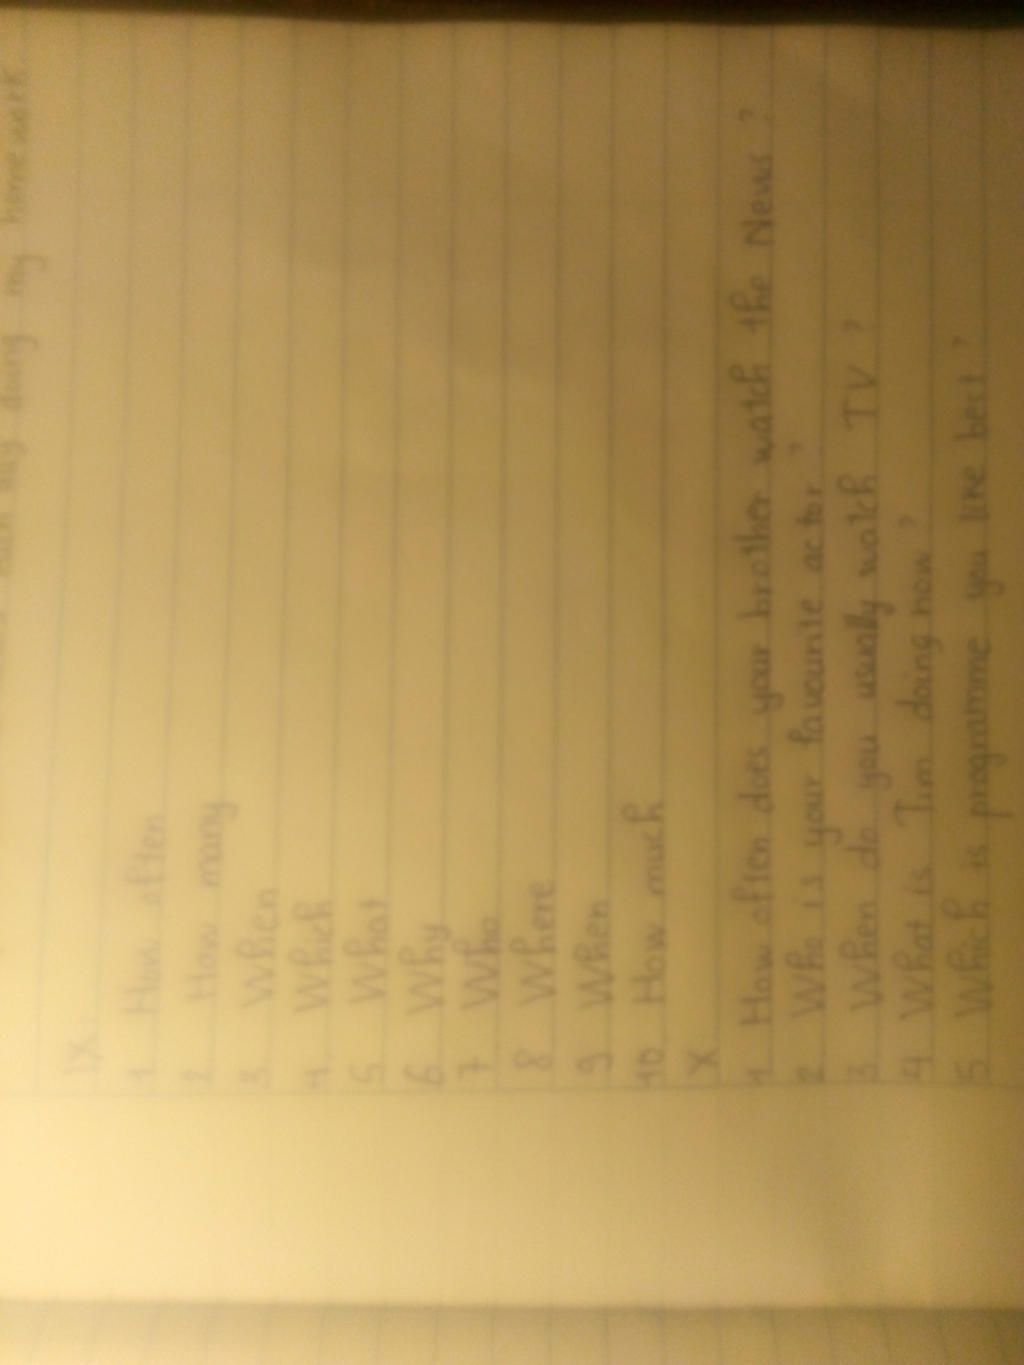 doing my homework
IX.
1. How often
2. How many
3. When
4. Which
5. What
6. Why
7. Who
8. Where
9. When
10. How much
X.
1. How often does your brother watch the News?
2. Who is your favourite actor?
3. When do you usually watch TV?
4. What is Tim doing now?
5. Which is programme you like best?